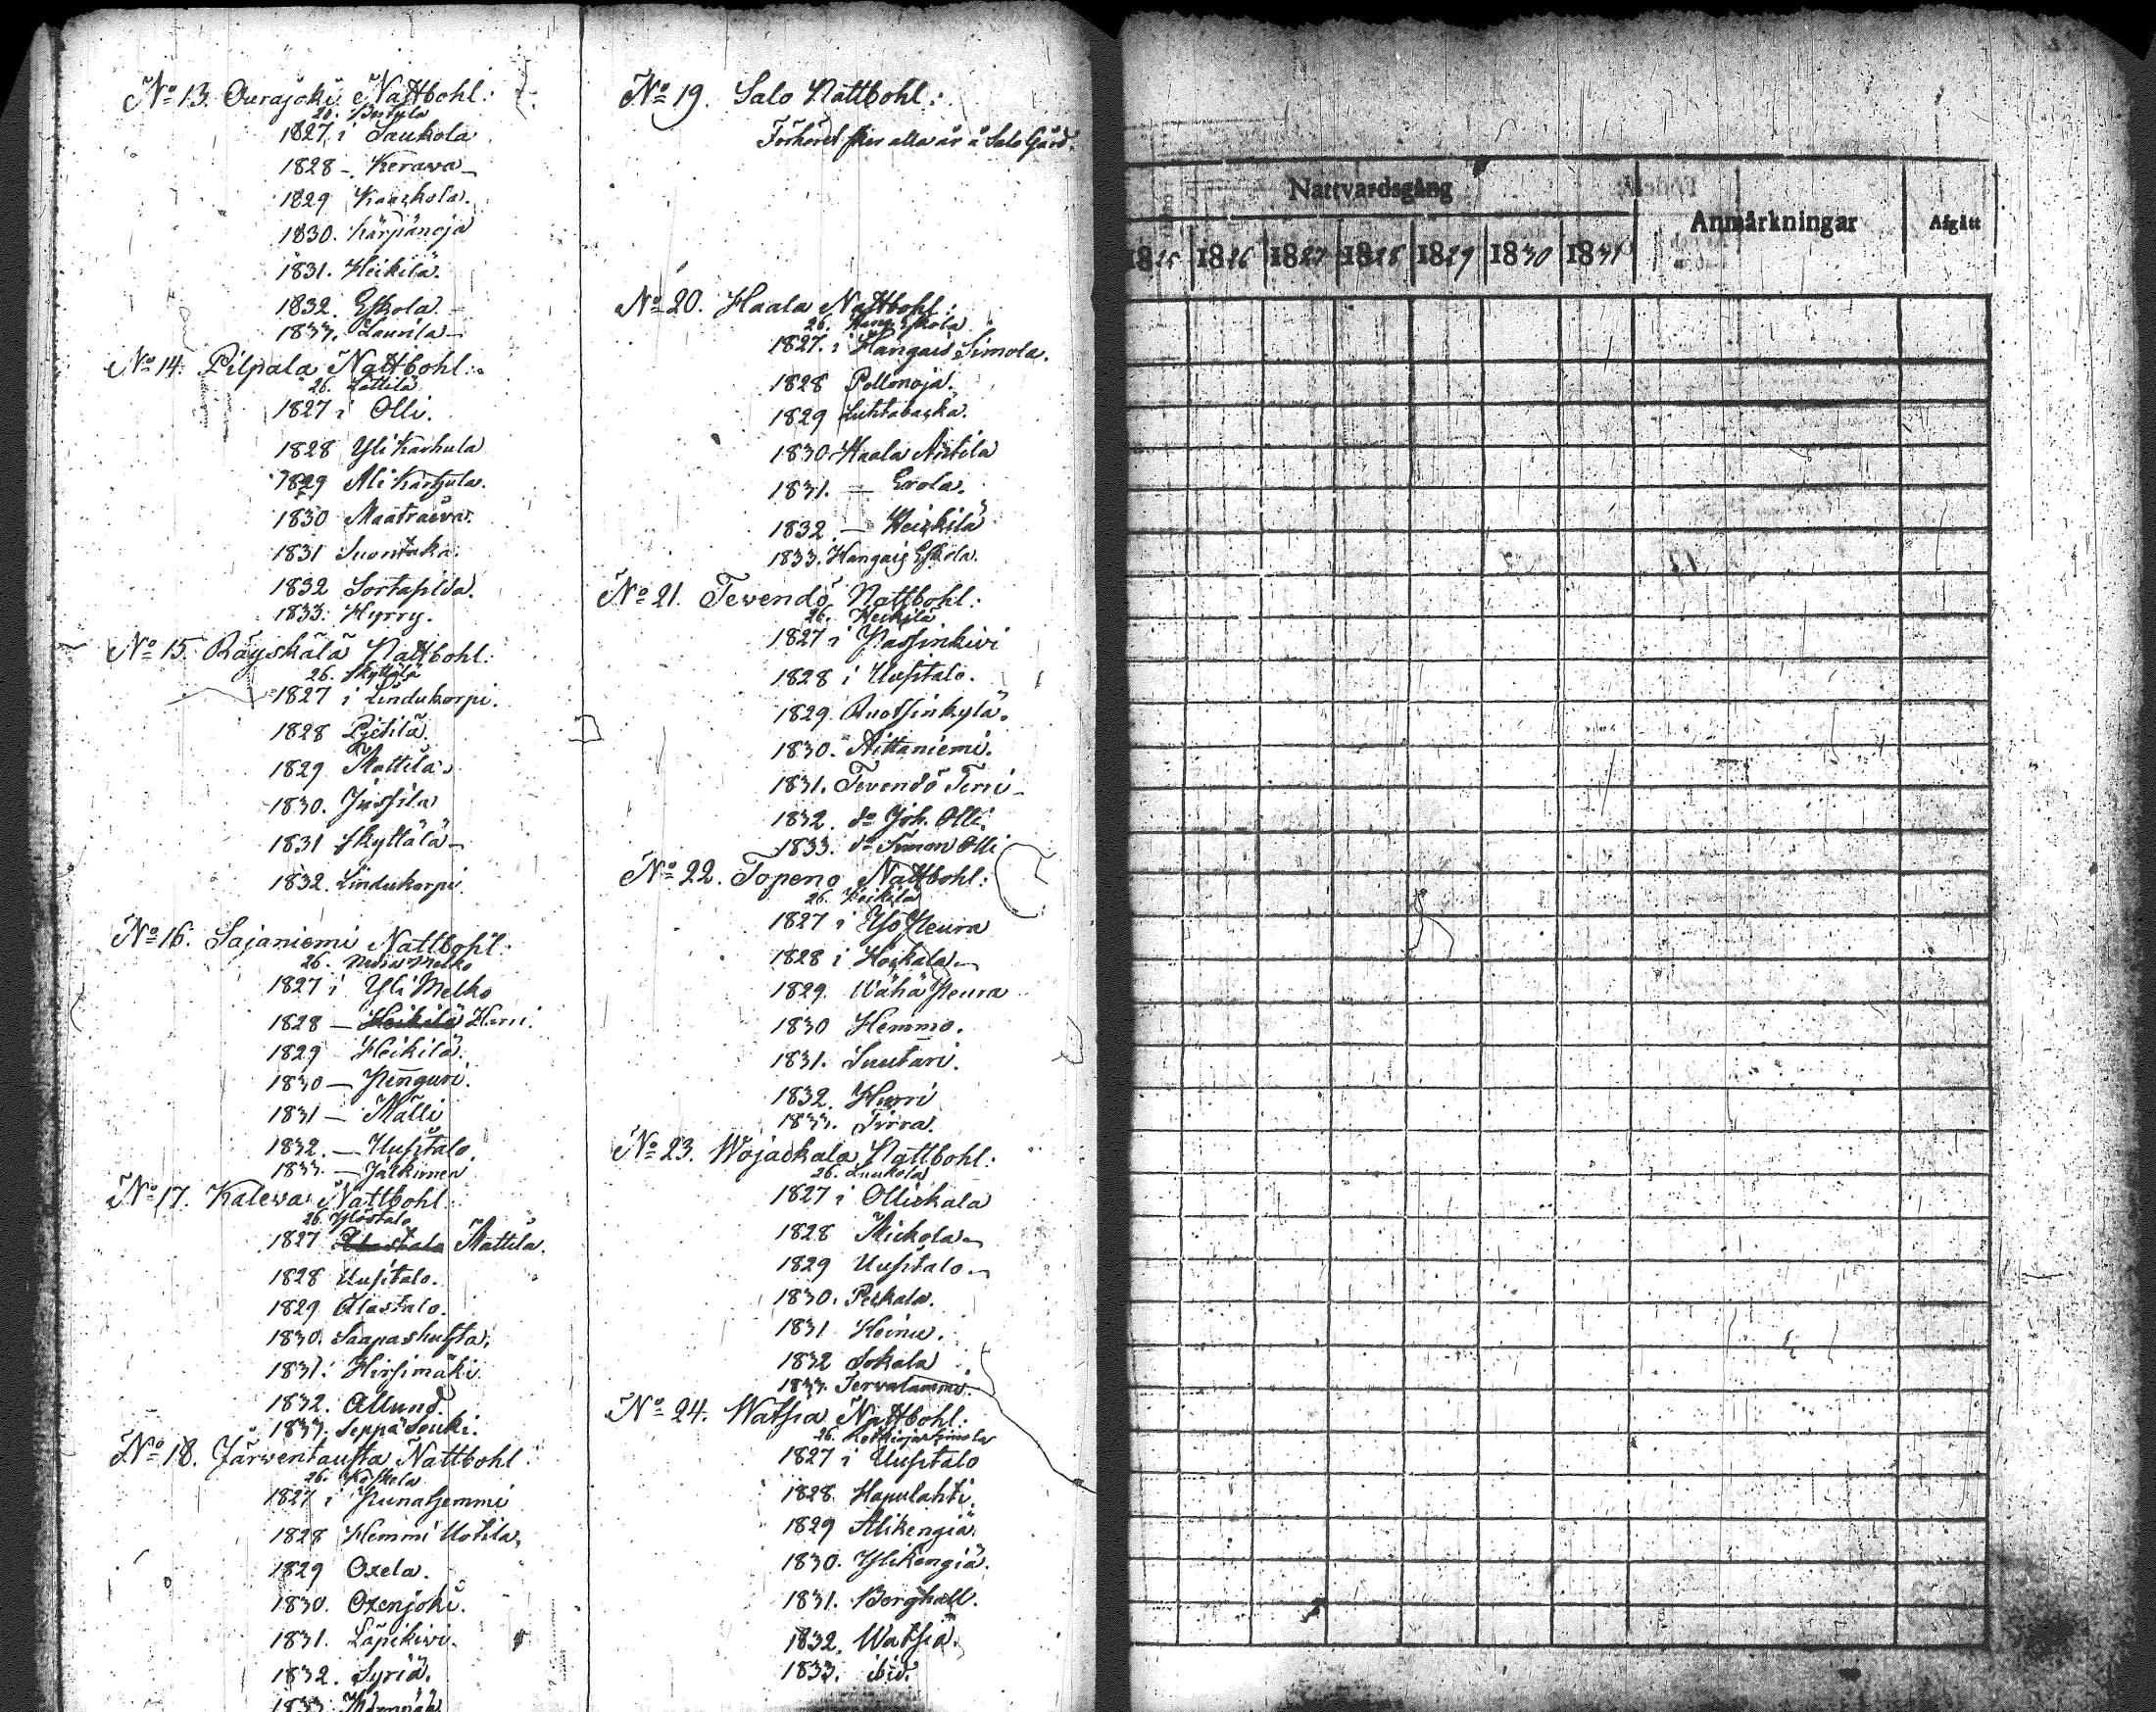 No 13. Ourajoki Nattbohl:
26. Perttula
1827 i Saukola
1828 - Kerawa -
1829 Kauskola.
1830. Kärpänoja
1831. Heikilä.
1832. Eskola. -
1833. Laurila -
No 14. Pilpala Nattbohl:
26. Lattila
1827 i Olli.
1828 Yli Karhula
1829 Ali Karhula.
1830 Maatraiva.
1831 Suontaka.
1832 Sortapilda.
1833. Hyrry.
No 15. Räyskälä Nattbohl:
26. Skyttälä
1827 i Lindukorpi.
1828 Pietilä.
1829 Mattila.
1830. Jussila
1831 Skyttälä -
1832. Lindukorpi.
No 16. Sajaniemi Nattbohl:
26. Melko
1827 i Yli Melko
1828 - Heikilä Hurri.
1829 Heikilä.
1830 - Penguri.
1831 - Mälli
1832. - Uusitalo.
1833. - Jälkinen
No 17. Kalewa Nattbohl:
26. Ylöstalo
1827 Alastalo Mattila.
1828 Uusitalo.
1829 Alastalo.
1830. Saapashuhta.
1831. Hirsimäki
1832. Allund.
1833. Seppä Souki.
No 18. Järwentausta Nattbohl:
26. Koskela
1827 i Punahemmi
1828 Hemmi Uotila.
1829 Oxela.
1830. Oxenjoki.
1831. Läpikivi.
1832. Syriä.
1833.
No 19. Salo Nattbohl:
Förhöret sker alla år å Salo Gård.
No 20. Haala Nattbohl:
26. Hang. Eskola
1827. i Hangais Simola.
1828 Pollonoja.
1829 Luhtabacka.
1830. Haala Antila
1831. - Erola.
1832. - Heickilä
1833. Hangais Eskola.
No 21. Tevendö Nattbohl:
26. Heikilä
1827 i Passinkivi
1828 i Uusitalo.
1829. Ruotsinkylä.
1830. Aittaniemi.
1831. Tevendö Terri -
1832. do Joh. Olli.
1833. do Simon Olli
No 22. Topeno Nattbohl:
26. Heikilä
1827 i Iso Peura
1828 i Hoskala -
1829. Wähä Peura
1830 Hemmo.
1831. Suutari.
1832 Hurri
1833. Sirra.
No 23. Wojackala Nattbohl:
26. Luukola
1827 i Ollickala
1828 Mickola -
1829 Uusitalo -
1830. Peckala.
1831 Heinu.
1832 Sokala
1833. Tervalammi.
No 24. Watsia Nattbohl:
26. Kotkoja Simola
1827 i Uusitalo
1828 Hapulahti.
1829 Alikengiä.
1830. Ylikengiä.
1831. Borghall.
1832. Watsia.
1833. ibid.
Nattvardsgång Anmärkningar Afgått
1825 1826 1827 1828 1829 1830 1831